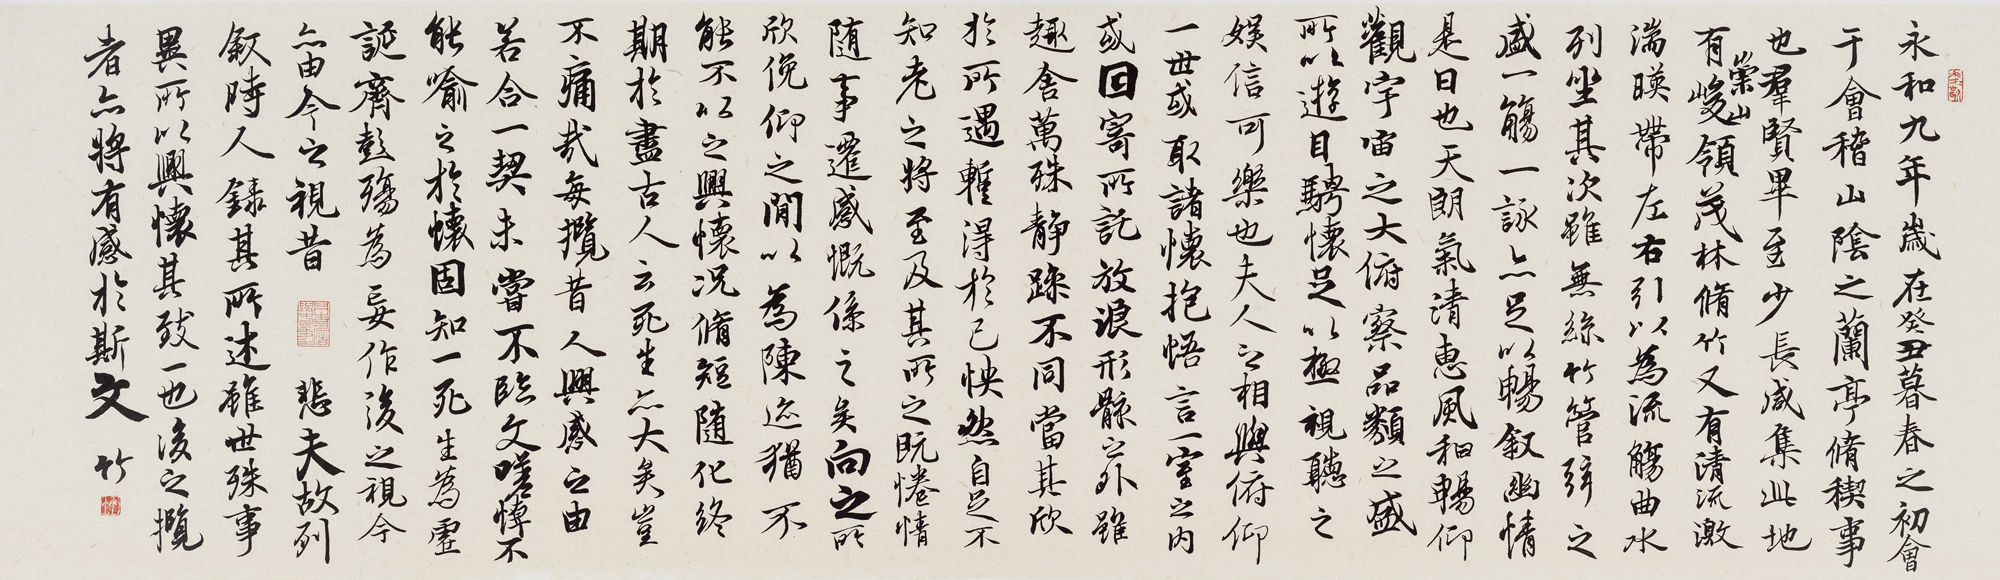 永和九年歲在癸丑暮春之初會
于會稽山陰之蘭亭脩稧事
也羣賢畢至少長咸集此地
有崇山峻領茂林脩竹又有清流激
湍暎帶左右引以為流觴曲水
列坐其次雖無絲竹管弦之
盛一觴一詠亦足以暢叙幽情
是日也天朗氣清惠風和暢仰
觀宇宙之大俯察品類之盛
所以遊目騁懷足以極視聽之
娛信可樂也夫人之相與俯仰
一世或取諸懷抱悟言一室之內
或因寄所託放浪形骸之外雖
趣舍萬殊静躁不同當其欣
於所遇暫得於己怏然自足不
知老之將至及其所之既惓情
随事遷感慨係之矣向之所
欣俛仰之閒以為陳迹猶不
能不以之興懷况脩短随化終
期於盡古人云死生亦大矣豈
不痛哉每攬昔人興感之由
若合一契未嘗不臨文嗟悼不
能喻之於懷固知一死生為虛
誕齊彭殤為妄作後之視今
亦由今之視昔 悲夫故列
叙時人錄其所述雖世殊事
異所以興懷其致一也後之攬
者亦將有感於斯文 竹